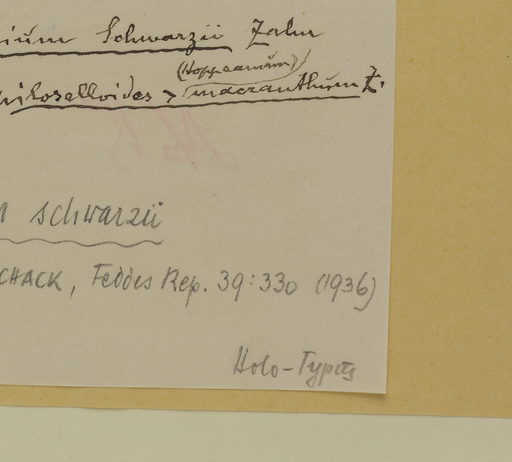 ium Schwarzii Zahn
(Hoppeanum)
iloselloides > macranthum Z.
schwarzii
CHACK, Feddes Rep. 39:330 (1936)
Holo-Typus